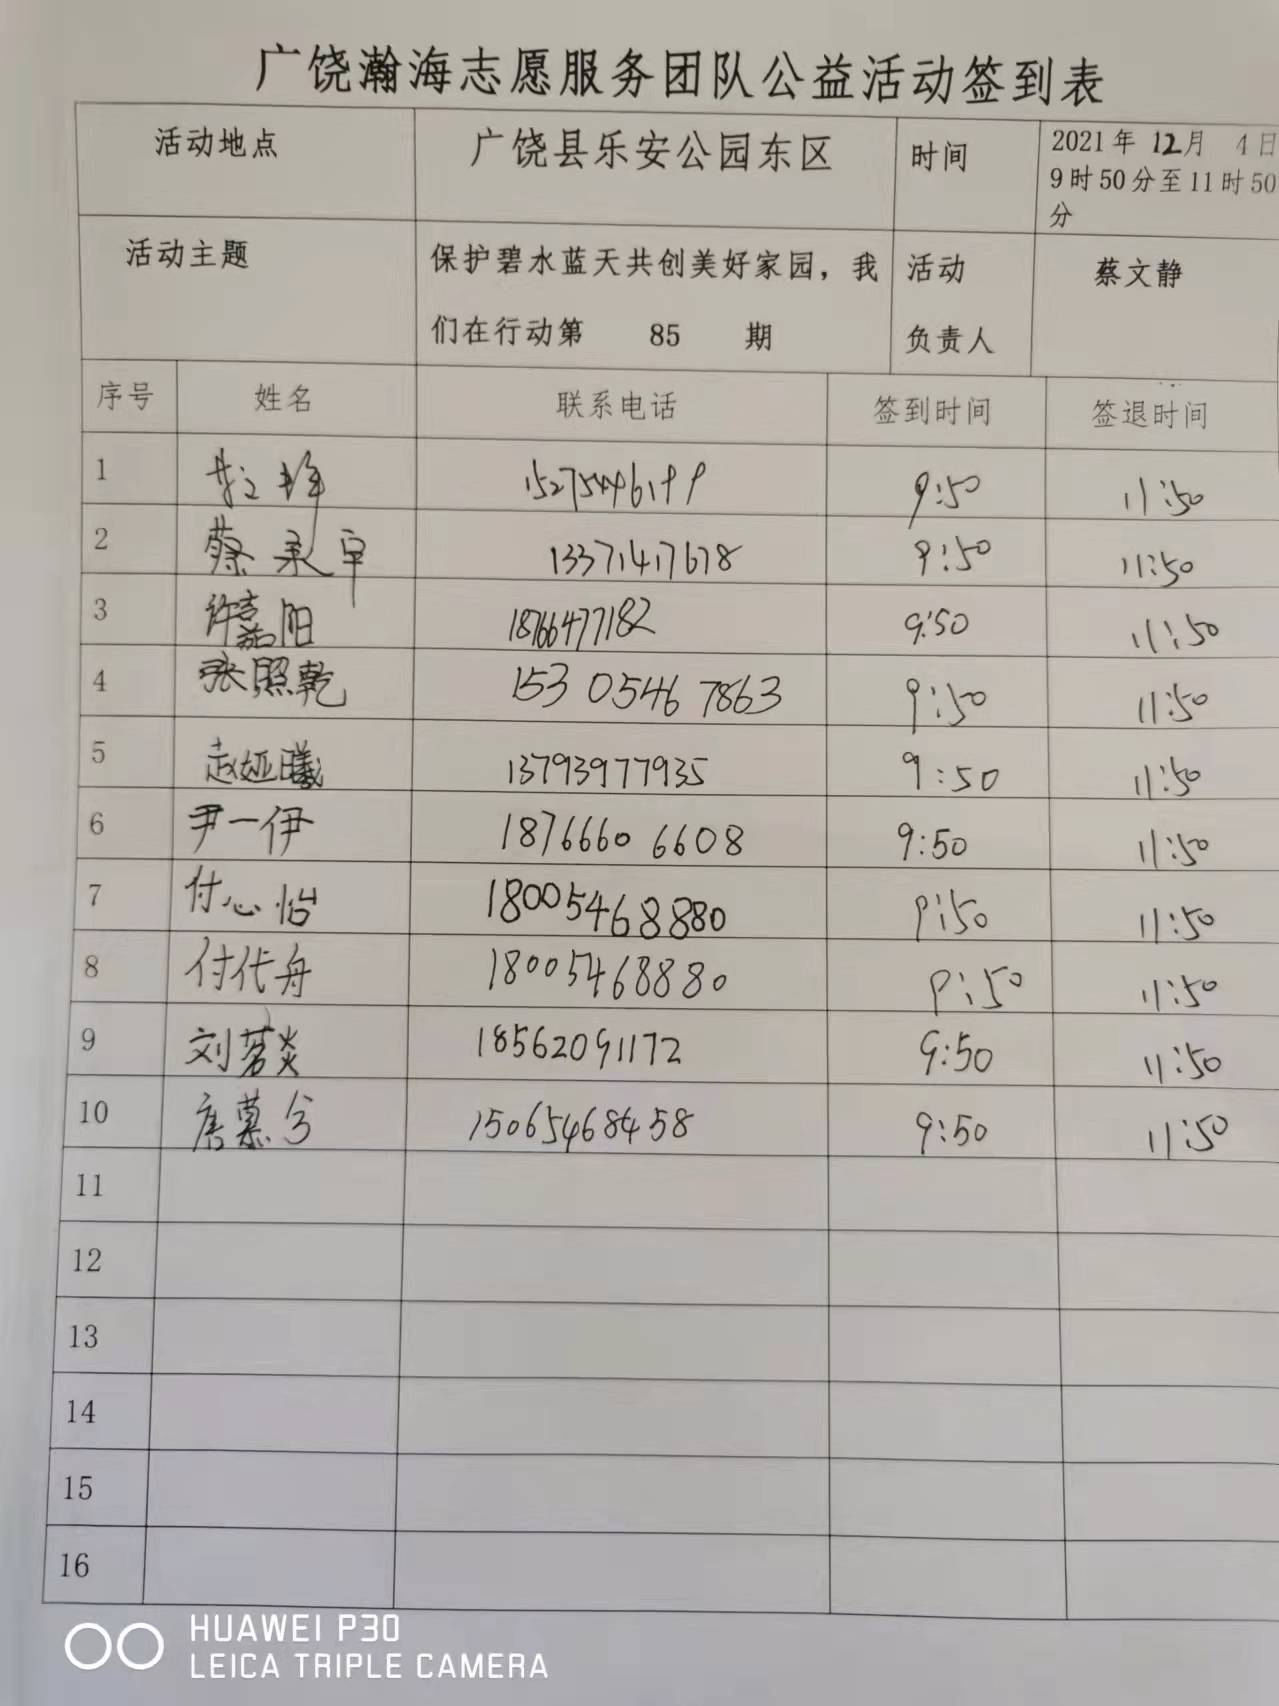 广饶瀚海志愿服务团队公益活动签到表
活动地点 广饶县乐安公园东区 时间 2021年 12月 4日
9时50分至11时50
分
活动主题 保护碧水蓝天共创美好家园，我 活动 蔡文静
们在行动第 85 期 负责人
序号 姓名 联系电话 签到时间 签退时间
1 9:50 11:50
2 蔡承 13371417678 9:50 11:50
3 许嘉阳 18766477182 9:50 11:50
4 张照乾 153 0546 7863 9:50 11:50
5 赵娅曦 13793977935 9:50 11:50
6 尹一伊 1876660 6608 9:50 11:50
7 付心怡 18005468880 9:50 11:50
8 付代舟 18005468880 9:50 11:50
9 刘茗炎 18562091172 9:50 11:50
10 唐慕兮 15065468458 9:50 11:50
11
12
13
14
15
16
HUAWEI P30
LEICA TRIPLE CAMERA